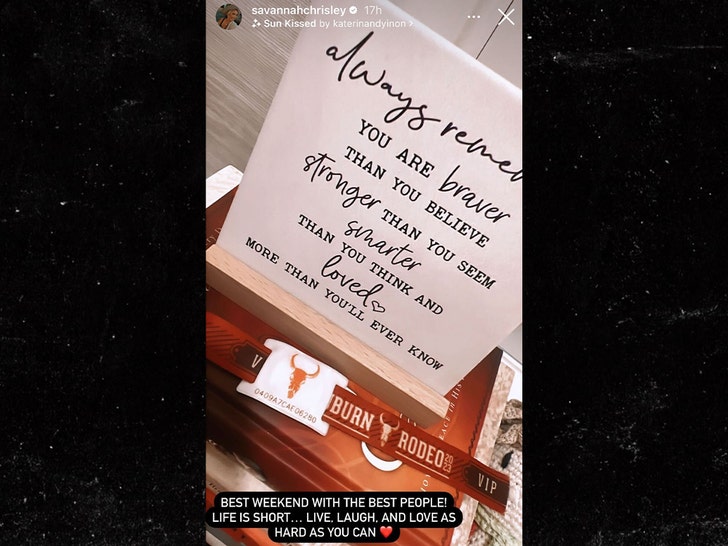 savannahchrisley 17h
Sun Kissed by katerinandyinon >
always remem
YOU ARE braver
THAN YOU BELIEVE
stronger THAN YOU SEEM
smarter
THAN YOU THINK AND
loved
MORE THAN YOU'LL EVER KNOW
V
0409A7CAE06280
BURN RODEO 2023
VIP
BEST WEEKEND WITH THE BEST PEOPLE!
LIFE IS SHORT... LIVE, LAUGH, AND LOVE AS
HARD AS YOU CAN ❤️